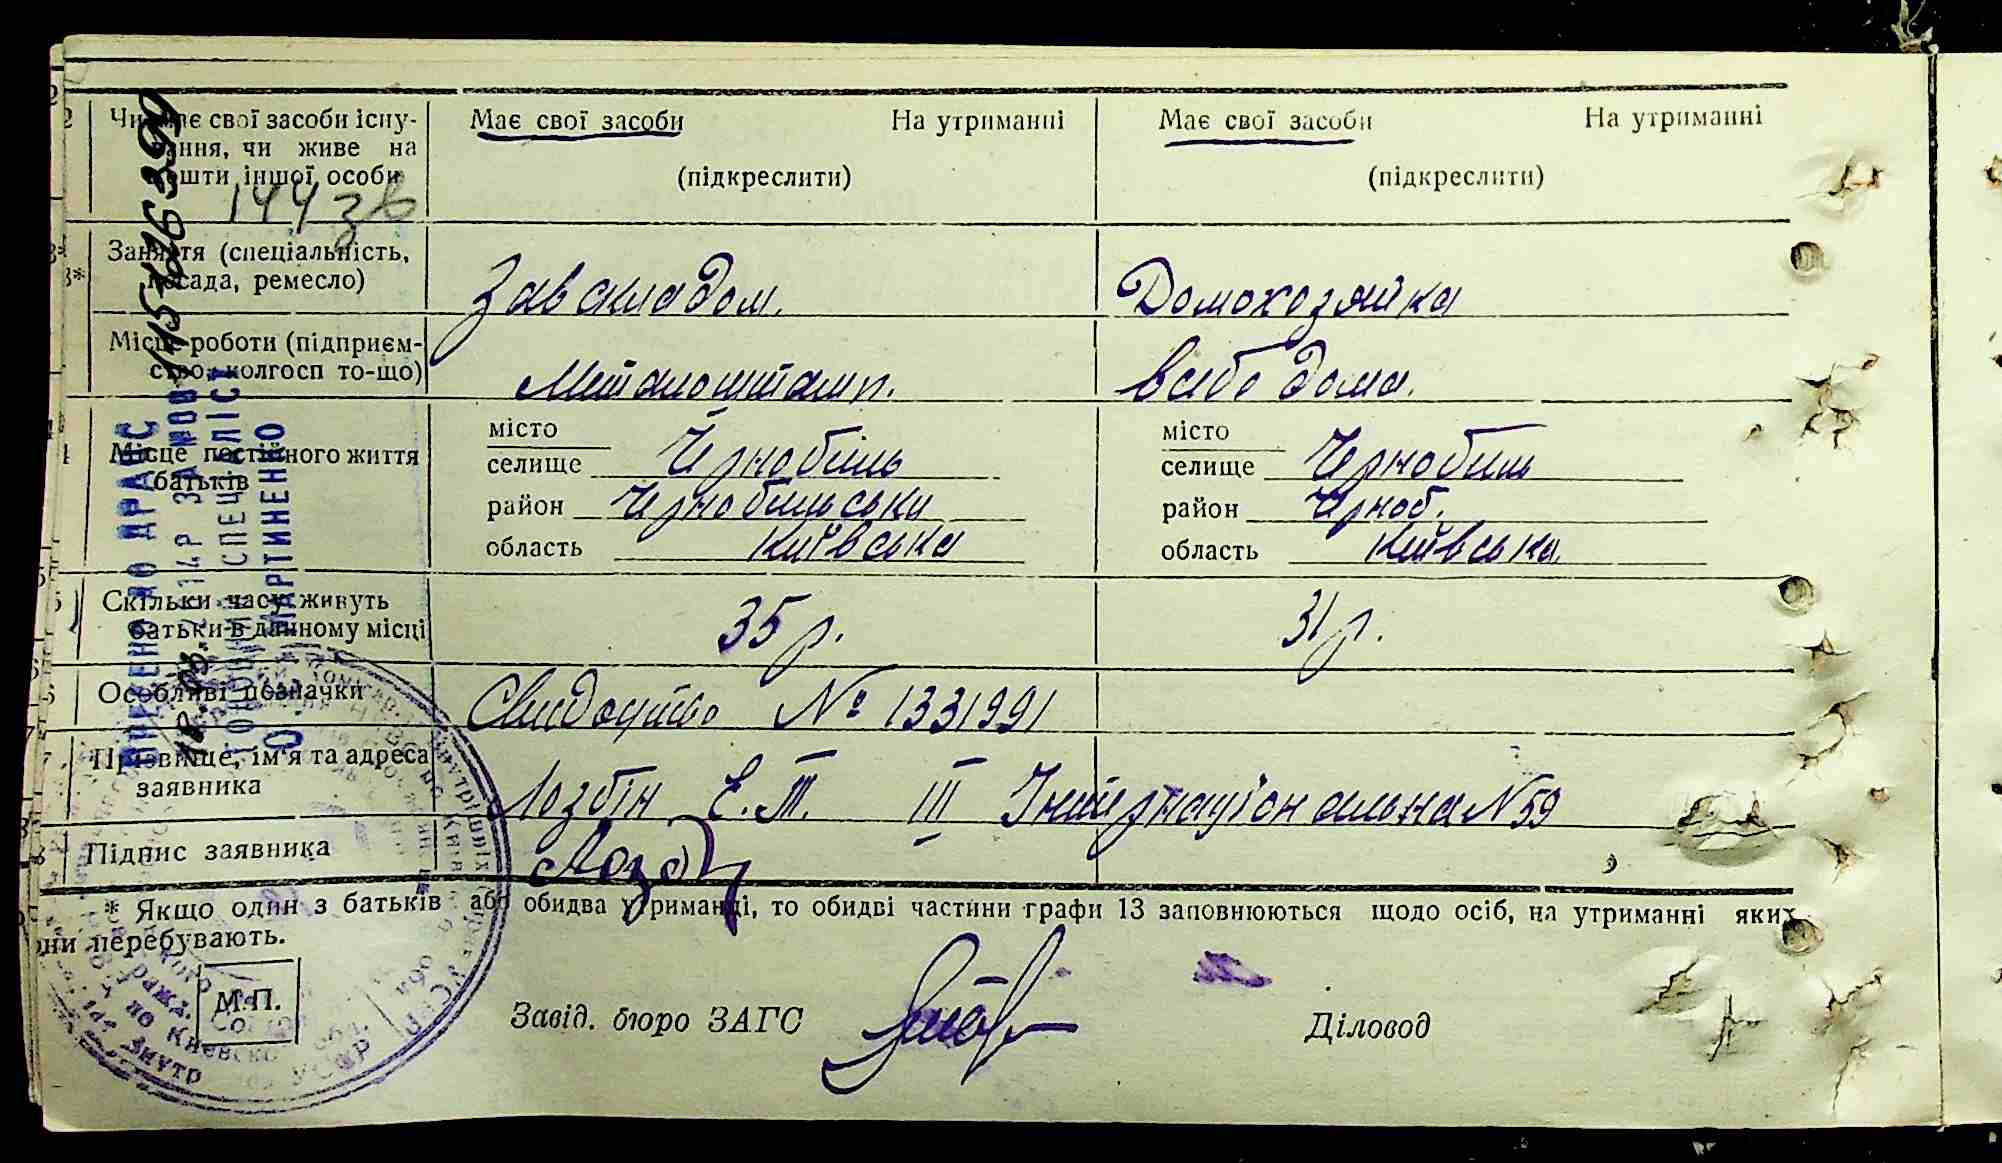 Чи має свої засоби існу-
вання, чи живе на
кошти іншої особи
Має свої засоби На утриманні
(підкреслити)
Має свої засоби На утриманні
(підкреслити)
Заняття (спеціальність,
посада, ремесло)
Зав складом.
Домохозяйка
Місце роботи (підприєм-
ство, колгосп то-що)
Металоштамп.
вдома.
Місце постійного життя
батьків
місто
селище Чернобіль
район Чернобильська
область Київська
місто
селище Чернобиль
район Черноб.
область Київська
Скільки часу живуть
батьки в данному місці
35 р.
31 р.
Особливі позначки
Свидоцтво № 1331991
Прізвище, ім'я та адреса
заявника
Лозбін Е.Т. III Інтернаціональна N 59
Підпис заявника
* Якщо один з батьків або обидва утриманці, то обидві частини графи 13 заповнюються щодо осіб, на утриманні яких
они перебувають.
М.П.
Завід. бюро ЗАГС
Діловод
ВИТЯГ
О. МАРТИНЕНКО